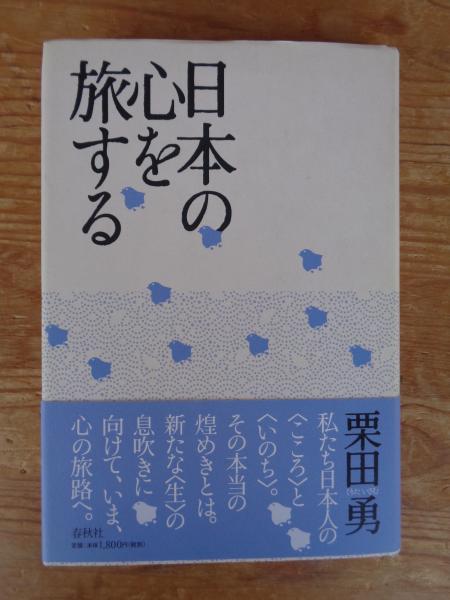 日本の
心を
旅する
栗田勇
(くりたいさむ)
私たち日本人の
〈こころ〉と
〈いのち〉。
その本当の
煌めきとは。
新たな〈生〉の
息吹きに
向けて、いま、
心の旅路へ。
春秋社
定価:本体1,800円(税別)